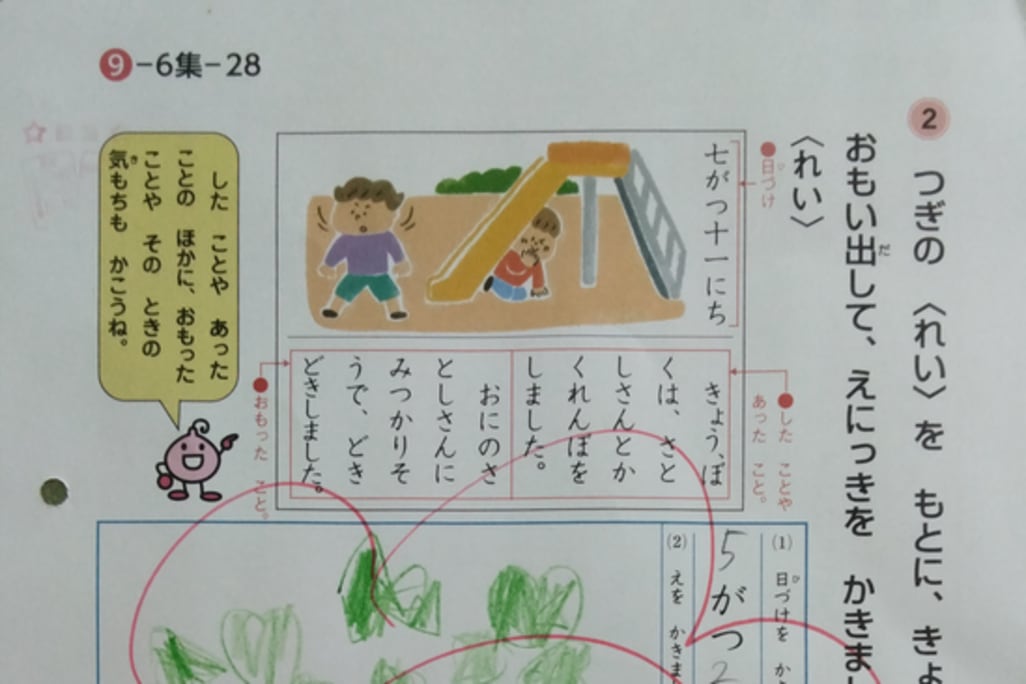 9-6集-28
2 つぎの 〈れい〉を もとに、きょ
おもい出して、えにっきを かきまし
だ
〈れい〉
●日づけ
び
七がつ十一にち
●した ことや
あった こと。
きょう、ぼ
くは、さと
しさんとか
くれんぼを
しました。
おにのさ
としさんに
みつかりそ
うで、どき
どきしました。
●おもった こと。
した ことや あった
ことの ほかに、おもった
ことや その ときの
気もちも かこうね。
き
(1) 日づけを か
び
5がつ2
(2) えを かきま